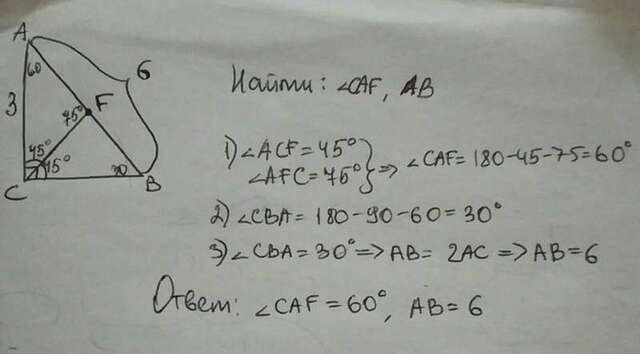 A
60
6
3
75°
F
45°
45°
30
C
B
Найти: ∠CAF, AB
1) ∠ACF = 45°
∠AFC = 75°
} => ∠CAF = 180-45-75=60°
2) ∠CBA = 180-90-60=30°
3) ∠CBA = 30° => AB = 2AC => AB = 6
Ответ: ∠CAF = 60°, AB = 6